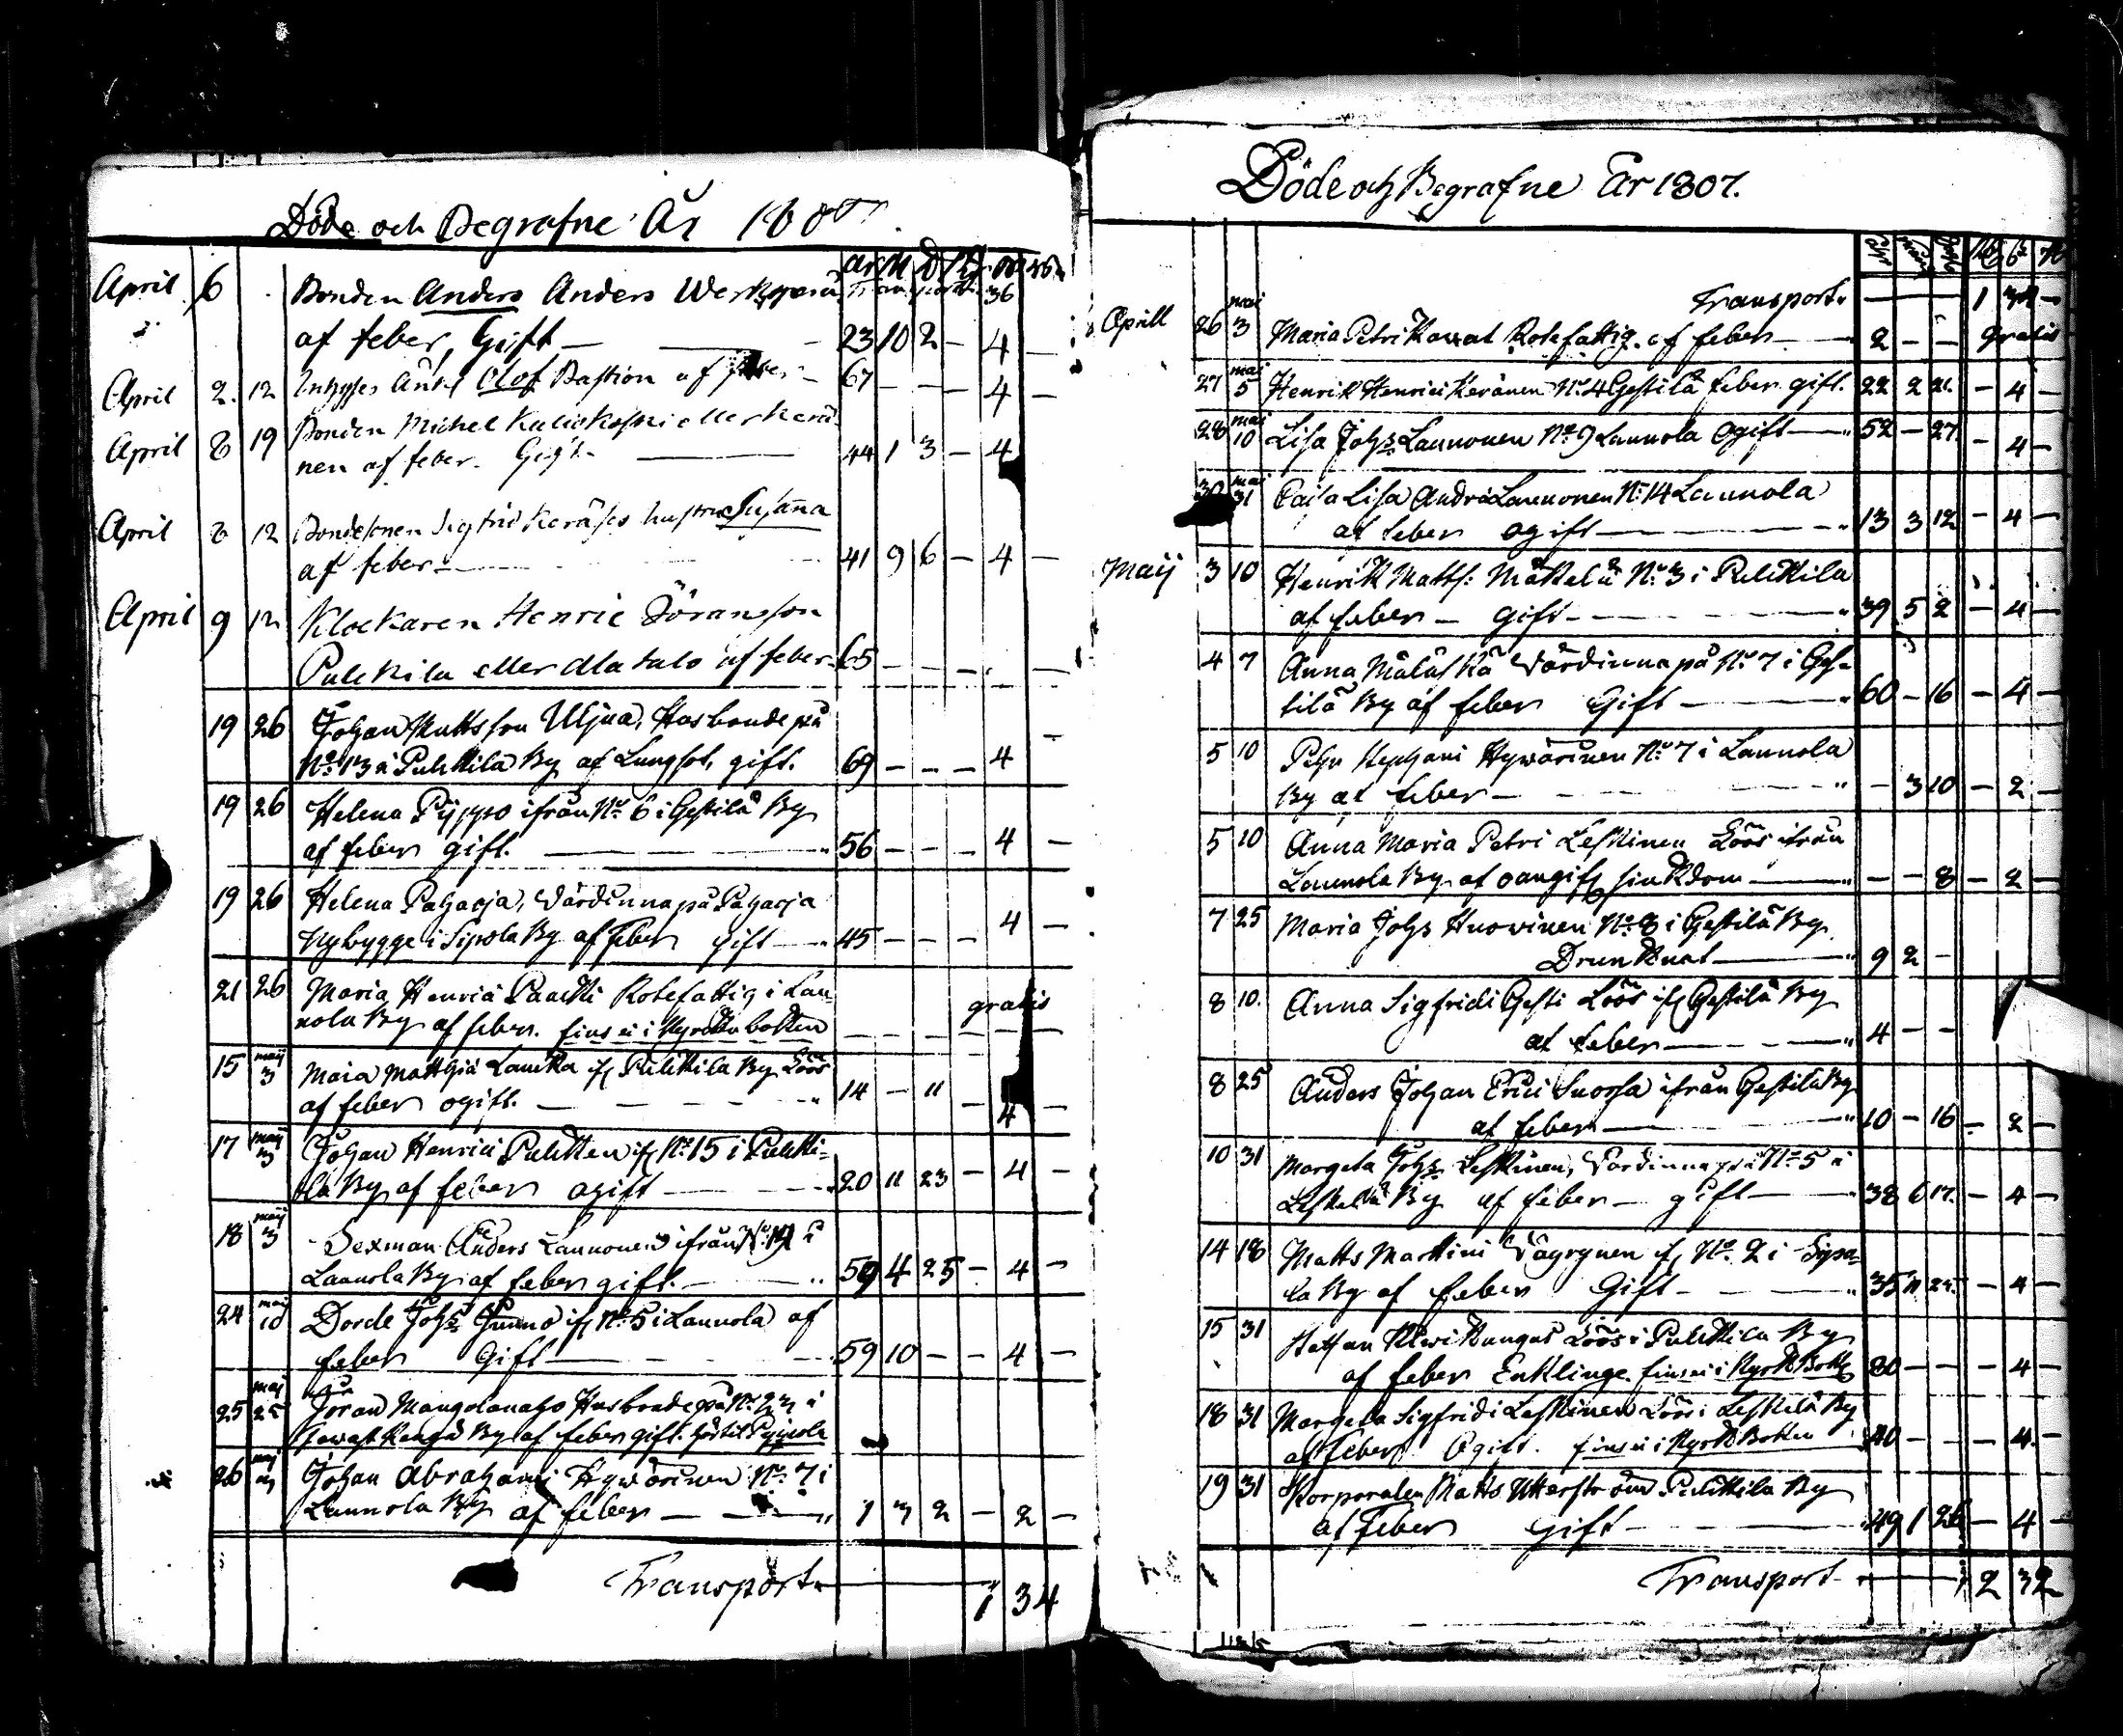 Döde och Begrafne År 180
år M D
April 6 Bonden Anders Anders Transport 36
af feber, Gift 23 10 2 – 4 –
April 2. 12 Olof Bastion af feber 67 – – – 4 –
April 8 19 Bonden Michel eller Kerä-
nen af feber. Gift 44 1 3 – 4
April 8 12 Bondesonen Sigfrid Keräses hustru Susanna
af feber 41 9 6 – 4 –
April 9 12 Klockaren Henric Göransson
Pulkkila eller Alatalo af feber 65 – – – –
19 26 Johan Mattsson Uljua, Husbonde på
No 13 i Pulkkila By af Lungsot, gift. 69 – – – 4 –
19 26 Helena Pijppo ifrån No 6 i Gestilä By
af feber gift. 56 – – – 4 –
19 26 Helena Paharja, Värdinna på Paharja
Nybygge i Sipola By af feber gift 45 – – – 4 –
21 26 Maria Henrici Paakki Rotefattig i Lau-
nola By af feber. fins ei i Kyrkoboken – – – gratis –
15 maij 3 Maia Matthiä Laukka if Pulkkila By Löös
af feber ogift. 14 – 11 – 4 –
17 maij 3 Johan Henrici Pulkken if No 15 i Pulkki-
la By af feber ogift 20 11 23 – 4 –
18 maij 3 Sexman Anders Launonen ifrån No 14 i
Launola By af feber gift. 59 4 25 – 4 –
24 maj 10 Dorde Johs if No 5 i Launola af
feber Gift 59 10 – – 4 –
25 maj 25 Jöran Husbonde på No
By af feber gift.
26 Johan Abrahami Hyvärinen No 7 i
Launola By af feber 1 3 2 – 2 –
Transport 1 34
Döde och Begrafne År 1807.
Transport 1 34 –
Aprill 26 maj 3 Maria Petri Rotefattig af feber 2 – – gratis
27 maj 5 Henrik Henrici Keränen No 4 Gestilä feber gift. 22 2 21 – 4 –
28 maj 10 Lisa Johs Launonen No 9 Launola Ogift 52 – 27 – 4 –
30 maj 31 Caisa Lisa Andrä Launonen No 14 Launola
af feber ogift 13 3 12 – 4 –
Maij 3 10 Henrik Matts: Mäkelä No 3 i Pulkkila
af feber – Gift 39 5 2 – 4 –
4 7 Anna Mäläskä Värdinna på No 7 i Ges-
tilä By af feber Gift 60 – 16 – 4 –
5 10 Pehr Stephani Hyvärinen No 7 i Launola
By af feber – 3 10 – 2 –
5 10 Anna Maria Petri Leskinen Löös ifrån
Launola By af oangif sjukdom – – 8 – 2 –
7 25 Maria Johs Huovinen No 8 i Gestilä By
Drunknat 9 2 –
8 10. Anna Sigfridi Gesti Löös if Gestilä By
af feber 4 – –
8 25 Anders Johan Erici Suorsa ifrån Gestilä By
af feber 10 – 16 – 2 –
10 31 Margeta Johs Leskinen, Värdinna på No 5 i
Leskelä By af feber – gift 38 6 17. – 4 –
14 18 Matts Martini Vägrynen if No 2 i Sipo-
la By af feber Gift 35 11 – 4 –
15 31 Staffan Kivikangas Löös i Pulkkila By
af feber Enklinge. fins ei i Kyrk Bok 80 – – – 4 –
18 31 Margeta Sigfridi Leskinen Löös i Leskelä By
af feber Ogift. fins ei i Kyrk Boken 40 – – – 4 –
19 31 Korporalen Matts Utterström Pulkkila By
af feber Gift 49 1 26 – 4 –
Transport 2 32